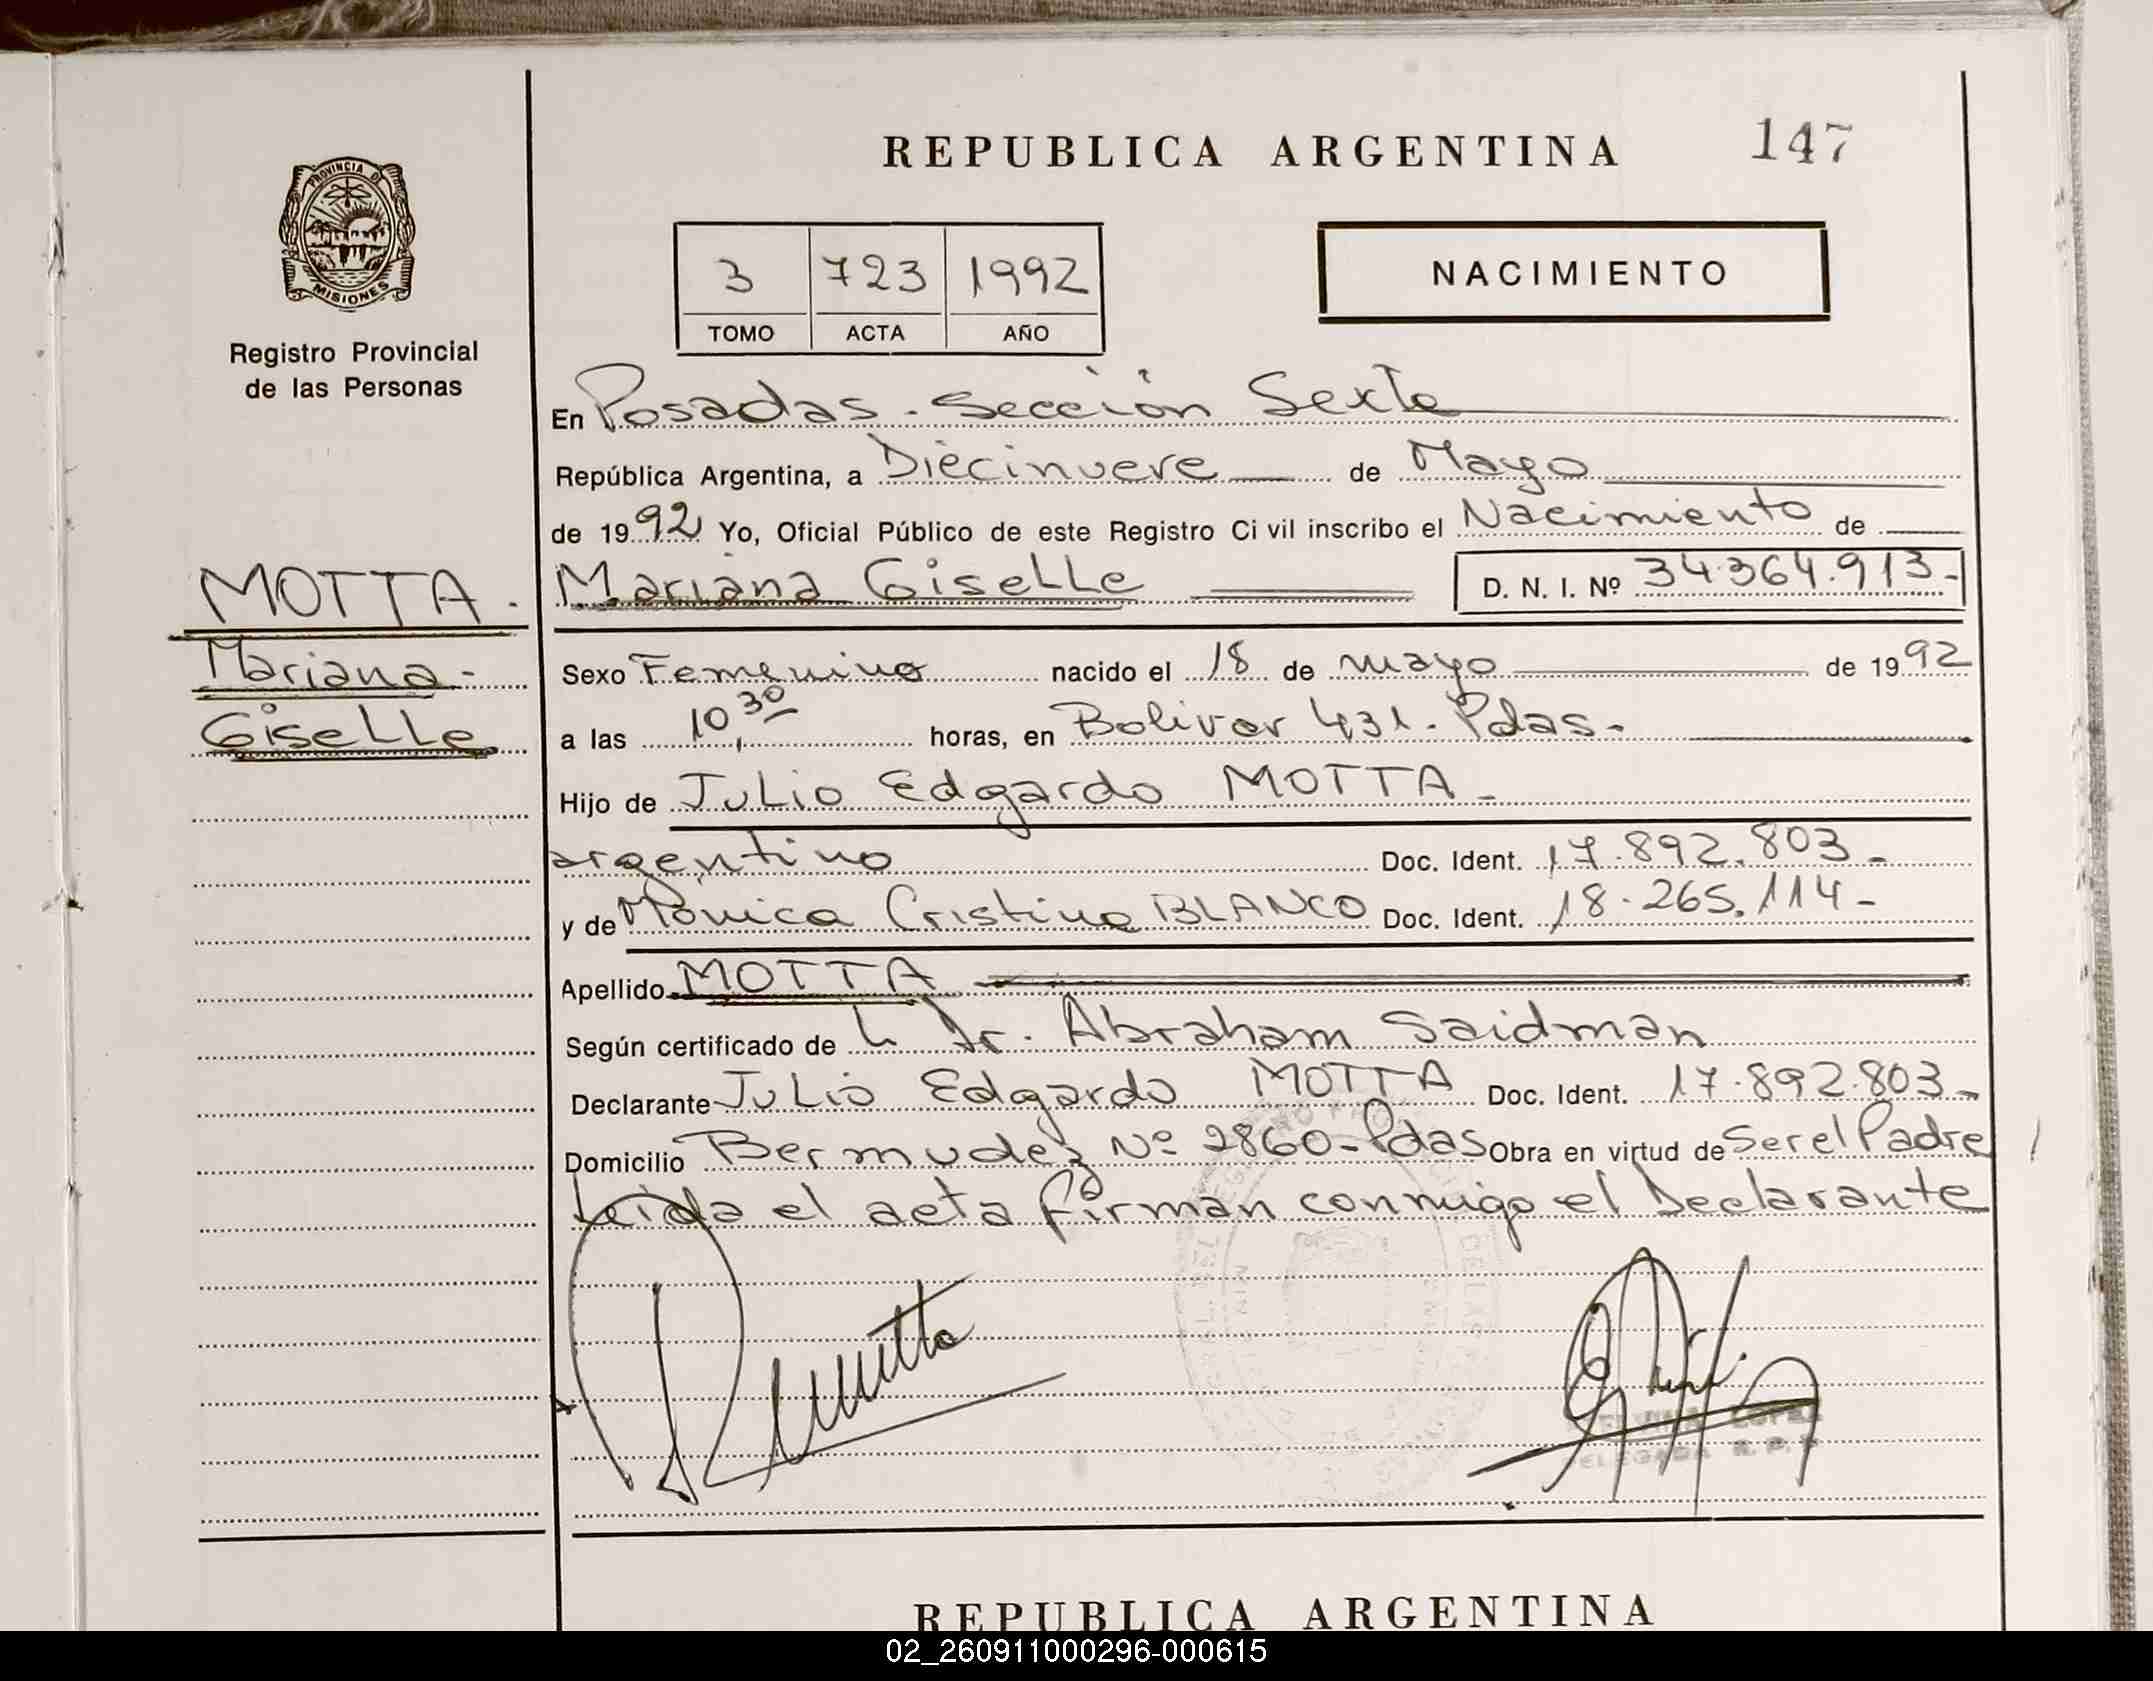 REPUBLICA ARGENTINA 147
PROVINCIA DE
MISIONES
Registro Provincial
de las Personas
3 723 1992
TOMO ACTA AÑO
NACIMIENTO
En Posadas - Sección Sexta
República Argentina, a Diecinueve de Mayo
de 1992 Yo, Oficial Público de este Registro Civil inscribo el Nacimiento de
Mariana Giselle D. N. I. Nº 34.364.913-
MOTTA.
Mariana-
Giselle
Sexo Femenino nacido el 18 de mayo de 1992
a las 10,30 horas, en Bolivar 431. Pdas.
Hijo de Julio Edgardo MOTTA-
argentino Doc. Ident. 17.892.803-
y de Mónica Cristina BLANCO Doc. Ident. 18.265.114-
Apellido MOTTA
Según certificado de Dr. Abraham Saidman
Declarante Julio Edgardo MOTTA Doc. Ident. 17.892.803-
Domicilio Bermudez Nº 2860-Pdas Obra en virtud de Ser el Padre
Leida el acta firman conmigo el Declarante
LOPEZ
DELEGADA R. P. P.
REPUBLICA ARGENTINA
02_260911000296-000615